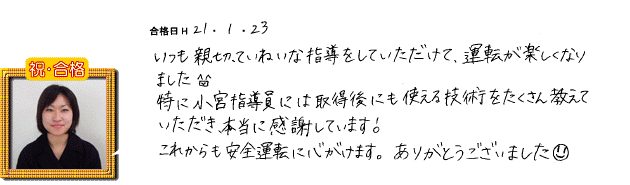 合格日 H 21.1.23
祝・合格
いつも親切、ていねいな指導をしていただけて、運転が楽しくなり
ました^^
特に小宮指導員には取得後にも使える技術をたくさん教えて
いただき、本当に感謝しています!
これからも安全運転に心がけます。ありがとうございました☺